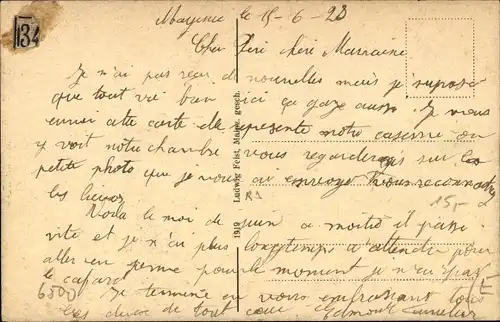 134
Mayence le 15-6-23
Cher Péré chére Marraine
Je n'ai pas reçu de nouvelles mais je suposé
que tout vai bon ici ça gaze aussi. Je vous
envoi cette carte elle represente notre caserne on
y voit notre chambre vous regarderes sur les
petite photo que je vous ai envoye vous reconnaitres
les lieux
15,-
R1
Voila le moi de juin a moitié il passe
vite et je n'ai plus longtemps a attendre pour
aller en perme pour le moment je n'ai pas
le cafard
6500
Je termine en vous embrassant tous
les deux de tout coeur Edmond
1919 Ludwig Feist, Mainz, gesch.